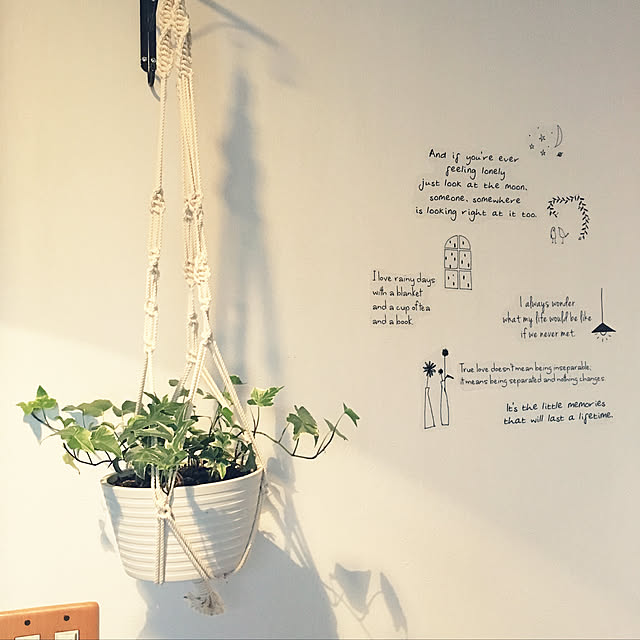 And if you're ever
feeling lonely
just look at the moon.
someone, somewhere
is looking right at it too.
I love rainy days
with a blanket
and a cup of tea
and a book.
I always wonder
what my life would be like
if we never met.
True love doesn't mean being inseparable;
it means being separated and nothing changes.
It's the little memories
that will last a lifetime.